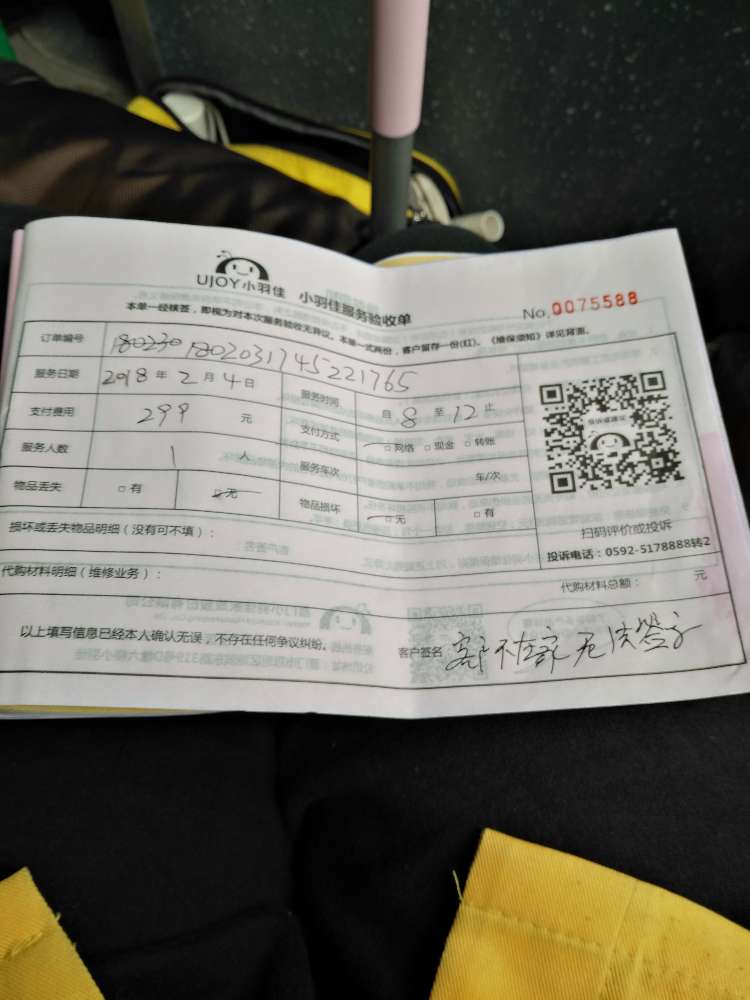 UJOY小羽佳 小羽佳服务验收单
No.0075588
本单一经核签，即视为对本次服务验收无异议。本单一式两份，客户留存一份(红)。《维保须知》详见背面。
订单编号 180230 1802031745221765
服务日期 2018 年 2 月 4 日 服务时间 自 8 至 12 止
支付费用 299 元 支付方式 □网络 □现金 □转账
服务人数 1 人 服务车次 车/次
物品丢失 □有 □无 物品损坏 □无 □有
投诉或建议
扫码评价或投诉
投诉电话：0592-5178888转2
损坏或丢失物品明细（没有可不填）：
代购材料明细（维修业务）： 代购材料总额： 元
以上填写信息已经本人确认无误，不存在任何争议纠纷。 客户签名： 客户不在家无法签字